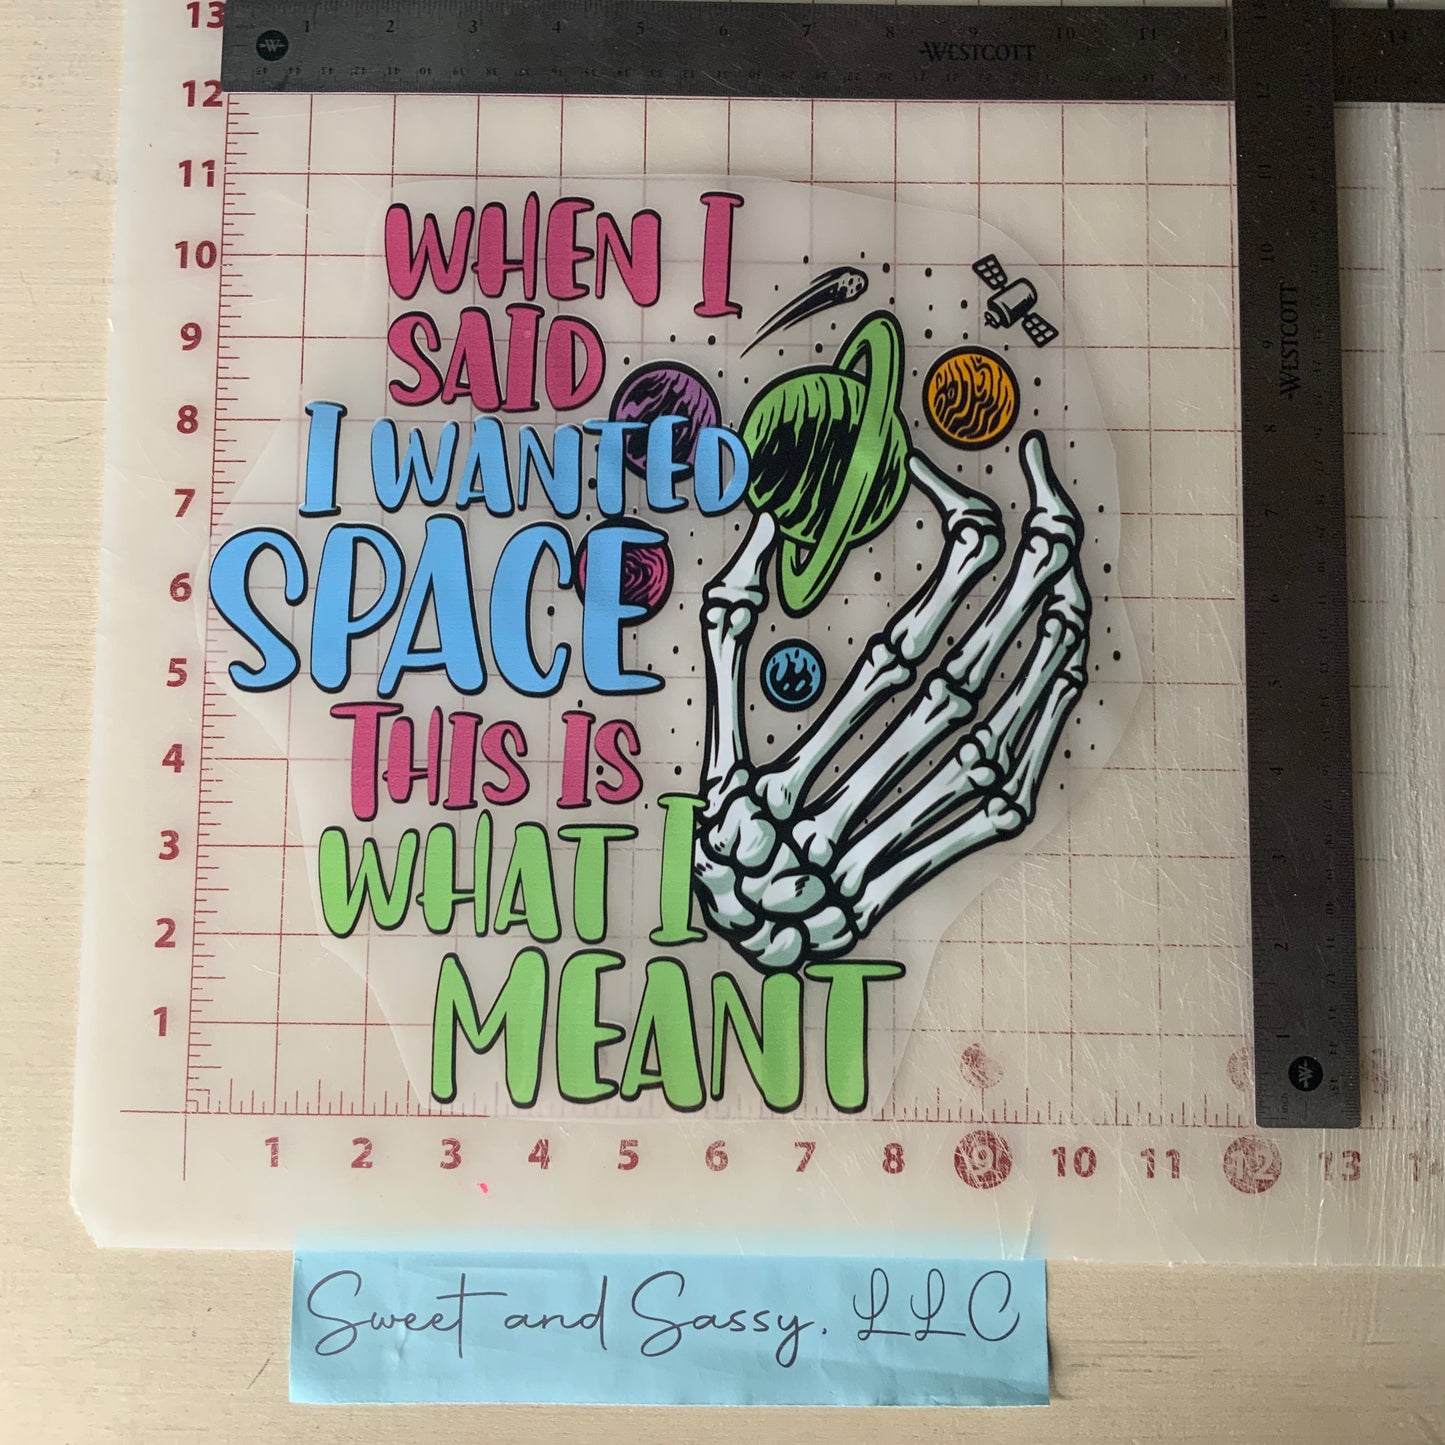 13
1 2 3 4 5 6 7 8 WESTCOTT 10 11 14
12
11
10
9
8
7
6
5
4
3
2
1
WHEN I
SAID
I WANTED
SPACE
THIS IS
WHAT I
MEANT
WESTCOTT
1 2 3 4 5 6 7 8 9 10 11 12 13
Sweet and Sassy, LLC